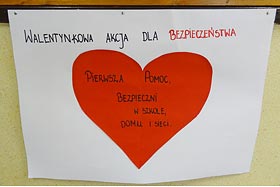 WALENTYNKOWA AKCJA DLA BEZPIECZEŃSTWA
PIERWSZA POMOC,
BEZPIECZNI
W SZKOLE,
DOMU I SIECI.